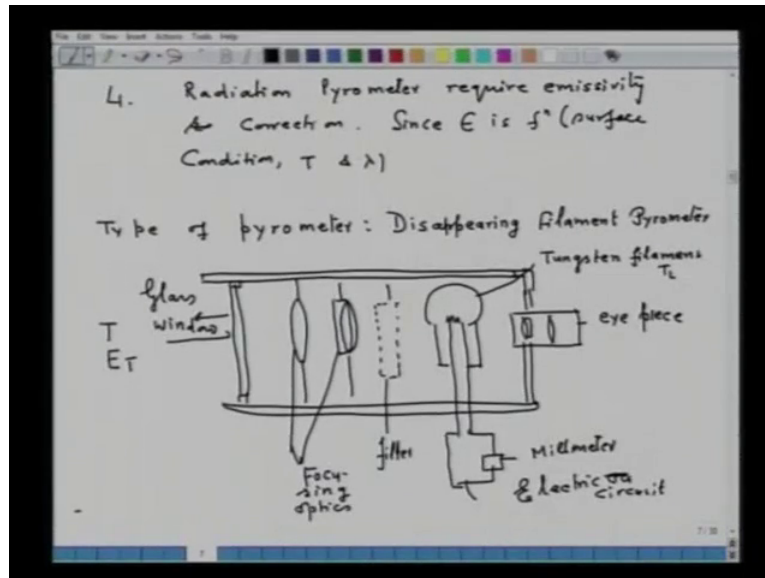 File Edit View Insert Actions Tools Help
4. Radiation Pyrometer require emissivity
Correction. Since ε is fⁿ (surface
Condition, T & λ)
Type of pyrometer: Disappearing filament Pyrometer
Tungsten filament
T_L
Glass
window
T
E_T
eye piece
filter
Focu-
sing
optics
Millmeter
Electric
circuit
7/30
7